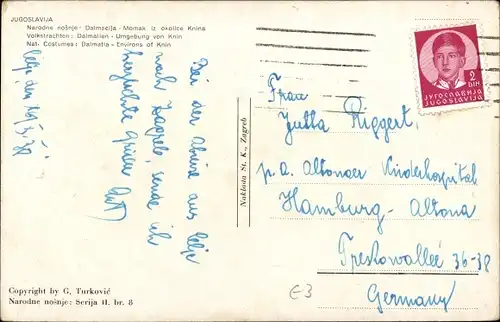 JUGOSLAVIJA
Narodne nošnje: Dalmacija - Momak iz okolice Knina
Volkstrachten: Dalmatien - Umgebung von Knin
Nat. Costumes: Dalmatia - Environs of Knin
Celje den 19.3.38
Bei der Abreise aus Celje
nach Zagreb, sende ich
herzlichste Grüße
Naklada St. K., Zagreb
2
DIN
ЈУГОСЛАВИЈА
JUGOSLAVIJA
Frau
Jutta Riggert,
p. a. Altonaer Kinderhospital
Hamburg - Altona
Treskowallee 36-38
Germany
E3
Copyright by G. Turković
Narodne nošnje: Serija II. br. 8